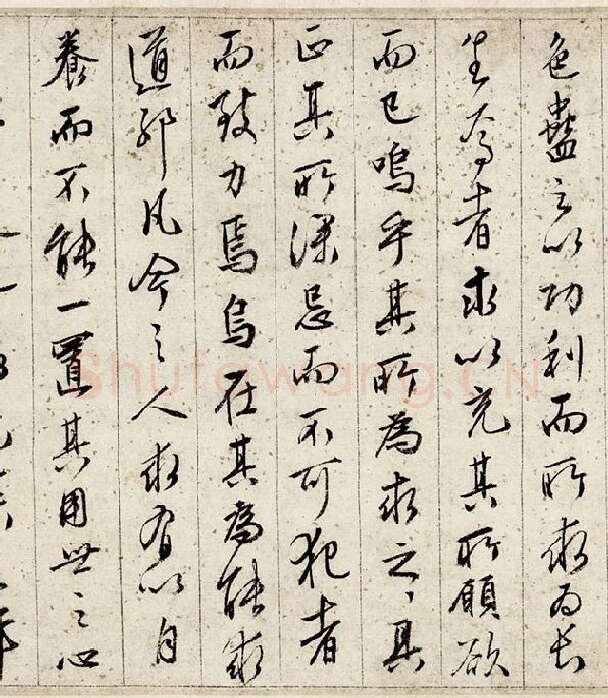 色蠱之以功利而所求為長
生焉者求以充其所願欲
而已嗚乎其所為求之々具
正其所深忌而不可犯者
而致力焉烏在其為能求
道耶凡今之人求有以自
養而不能一置其用世之心
Shufawang.CN